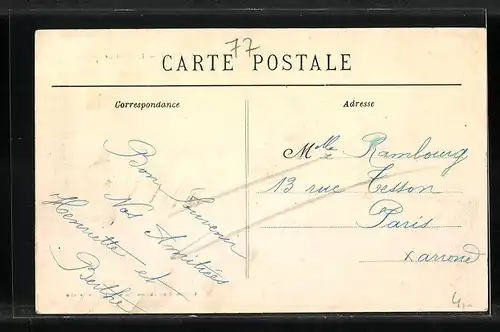 77
CARTE POSTALE
Correspondance
Adresse
Bon Souvenir
Nos Amitiées
Henriette et
Berthe
Mlle Rambourg
13 rue Tesson
Paris
X arrond